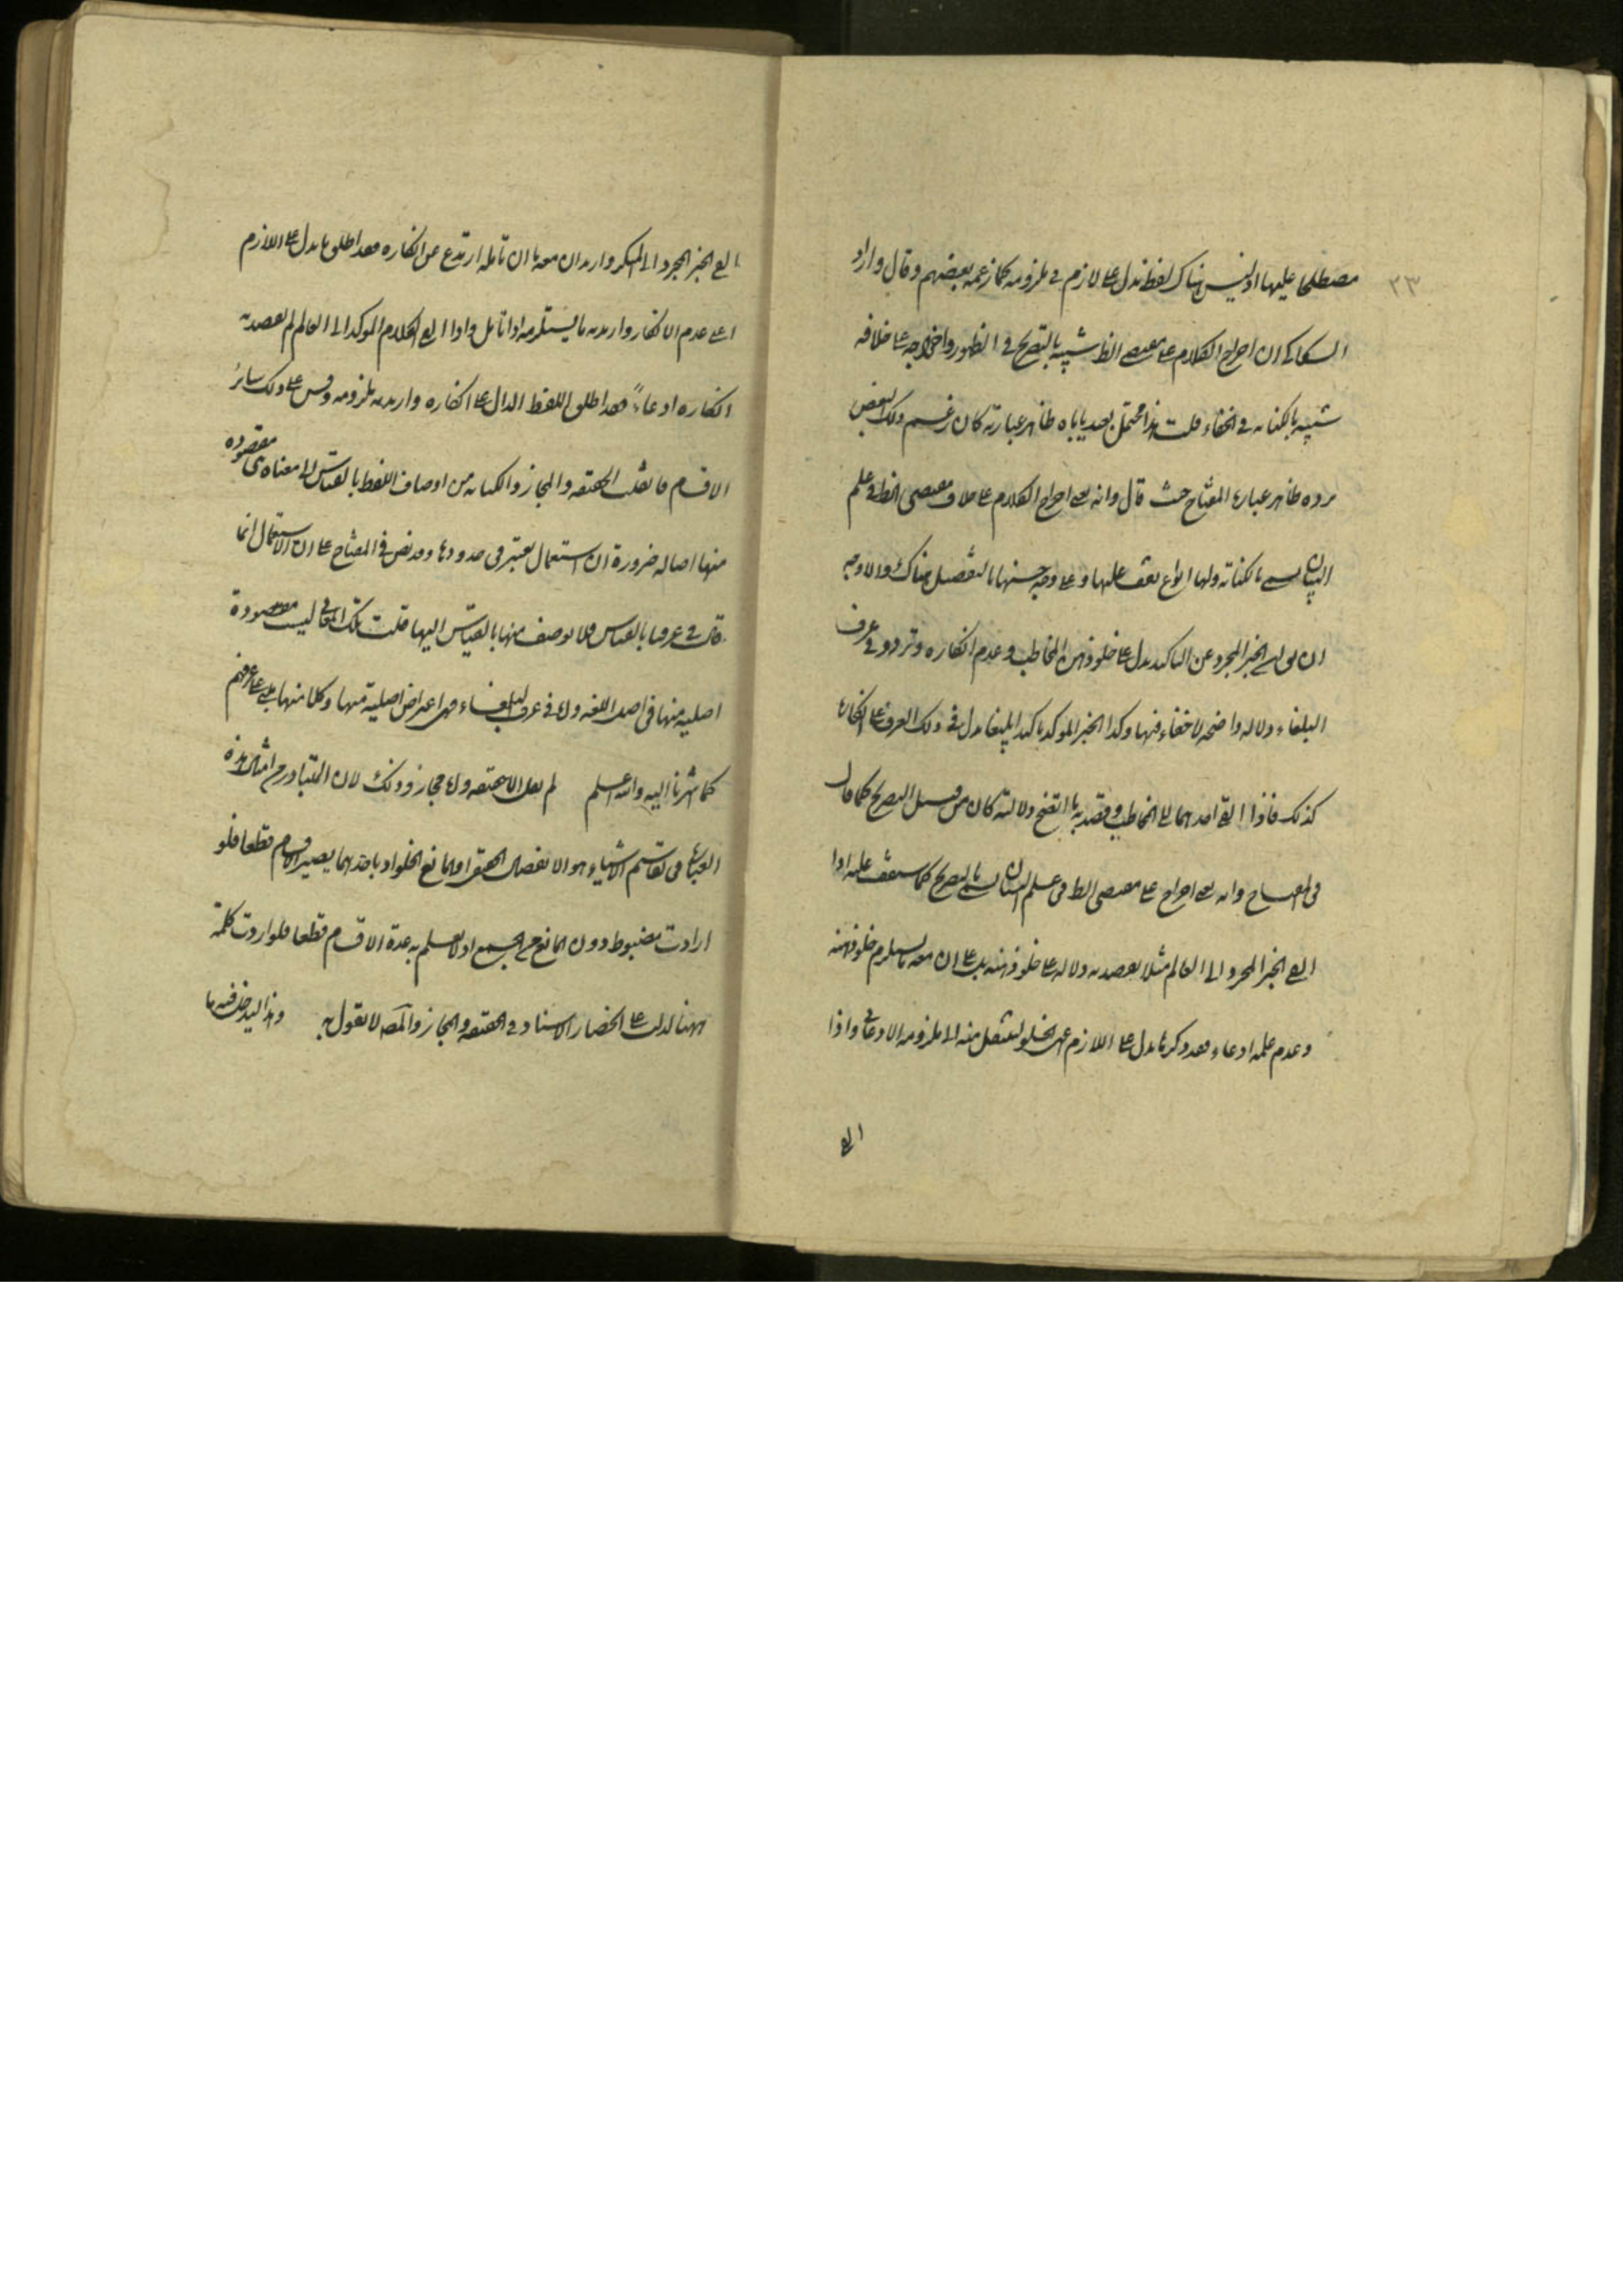 ٢٣
مصطلحا عليها اذ ليس هناك لفظ يدل على لازم في ملزومه كما زعمه بعضهم وقال واراد
السكاكي ان اخراج الكلام على مقتضى الظ شبيه بالتصريح في الظهور واخراجه على خلافه
شبيه بالكناية في الخفاء قلت هذا محتمل بعيد ياباه ظاهر عبارته كان زعم ذلك البعض
يرده ظاهر عبارة المفتاح حيث قال وانه يعني اخراج الكلام على خلاف مقتضى الظ في علم
البيان يسمى بالكناية ولها انواع تقف عليها وعلى وجه حسنها بالتفصيل هناك والاوجه
ان يق الخبر المجرد عن التاكيد يدل على خلو ذهن المخاطب وعدم انكاره وتردده في عرف
البلغاء دلالة واضحة لا خفاء فيها وكذا الخبر الموكد تاكيدا بليغا يدل في ذلك العرف على انكاره
كذلك فاذا القي احدهما الى المخاطب وقصد به ما اتضح دلالته كان من قبيل التصريح كما قال
في المفتاح وانه يعني اخراج على مقتضى الظ في علم البيان يسمى بالتصريح كما ستقف عليه اذا
القي الخبر المجرد الى العالم مثلا يقصد به دلالة على خلو ذهنه بل على ان معه ما يستلزم خلو ذهنه
وعدم علمه ادعاء فقد ذكر ما يدل على اللازم عن الخلو لينتقل منه الى ملزومه الادعائي واذا
القي
القي الخبر المجرد الى المنكر واريد ان معه ما ان تامله ارتدع عن انكاره فقد اطلق ما يدل على اللازم
اعني عدم الانكار واريد به ما يستلزمه اذا تامل واذا القي الكلام الموكد الى العالم لم يقصد به
انكاره ادعاءً فقد اطلق اللفظ الدال على انكاره واريد به ملزومه وقس على ذلك سائر
الاقسام فان قلت الحقيقة والمجاز والكناية من اوصاف اللفظ بالقياس الى معناه مقصوده
منها اصالة ضرورة ان استعمال يعتبر في حدودها وقد نص في المفتاح على ان الاستعمال انما
في عرفنا بالقياس فلا يوصف منها بالقياس اليها قلت تلك المعاني ليست مقصودة
اصلية منها في اصل اللغة واما في عرف البلغاء فهي اغراض اصلية منها وكلامنها على عرفهم
كما اشرنا اليه والله اعلم لم يقل اما حقيقة واما مجاز وذلك لان المتبادر من امثال هذه
العبارة في تقاسيم الاشياء هو الانفصال الحقيقي او المانع الخلو اذ باحدهما يصير الاقسام قطعا فلو
ارادت مضبوط دون المانع من الجمع اذ لا يعلم به عدة الاقسام قطعا فلو اردت كلمة
ههنا لدلت على انحصار الاسناد في الحقيقة والمجاز والمص لا يقول به